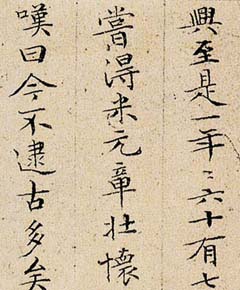 興至是一年〻六十有七
嘗得米元章壯懷
嘆曰今不逮古多矣